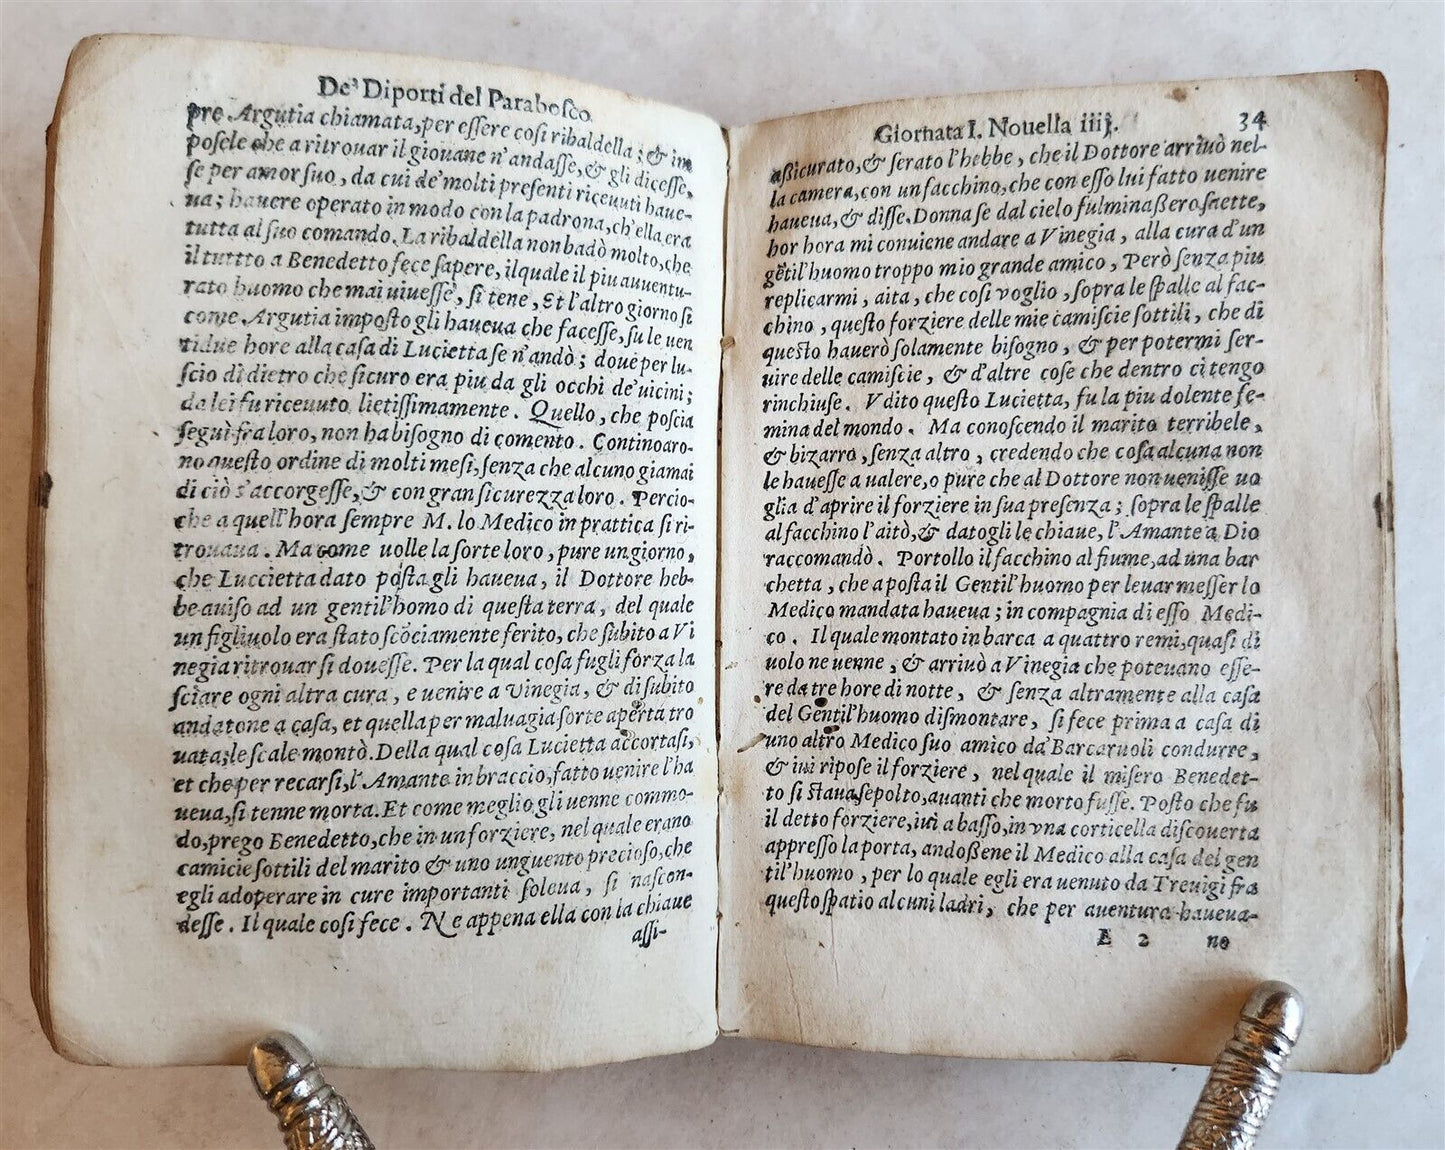 De' Diporti del Parabosco.
pre Argutia chiamata, per essere cosi ribaldella; & im
posele che a ritrouar il giouane n'andasse, & gli dicesse,
se per amor suo, da cui de' molti presenti riceuuti haue-
ua; hauere operato in modo con la padrona, ch'ella era
tutta al suo comando. La ribaldella non badò molto, che
il tuttto a Benedetto fece sapere, il quale il piu auuentu-
rato huomo che mai uiuesse, si tene, Et l'altro giorno si
come Argutia imposto gli haueua che facesse, su le uen
tidue hore alla casa di Lucietta se n'andò; doue per lu-
scio di dietro che sicuro era piu da gli occhi de' uicini;
da lei fu riceuuto lietissimamente. Quello, che poscia
seguì fra loro, non ha bisogno di comento. Continoaro-
no questo ordine di molti mesi, senza che alcuno giamai
di ciò s'accorgesse, & con gran sicurezza loro. Percio-
che a quell'hora sempre M. lo Medico in prattica si ri-
trouaua. Ma come uolle la sorte loro, pure un giorno,
che Luccietta dato posta gli haueua, il Dottore heb-
be auiso ad un gentil'homo di questa terra, del quale
un figliuolo era stato scōciamente ferito, che subito a Vi
negia ritrouar si douesse. Per la qual cosa fugli forza la
sciare ogni altra cura, e uenire a Vinegia, & di subito
andatone a casa, et quella per maluagia sorte aperta tro
uata; le scale montò. Della qual cosa Lucietta accortasi,
et che per recarsi, l'Amante in braccio, fatto uenire l'ha
ueua, si tenne morta. Et come meglio gli uenne commo-
do, prego Benedetto, che in un forziere, nel quale erano
camicie sottili del marito & uno unguento precioso, che
egli adoperare in cure importanti soleua, si nascon-
desse. Il quale cosi fece. Ne appena ella con la chiaue
assi-
Giornata I. Nouella iiij. 34
assicurato, & serato l'hebbe, che il Dottore arriuò nel-
la camera, con un facchino, che con esso lui fatto uenire
haueua, & disse. Donna se dal cielo fulminassero saette,
hor hora mi conuiene andare a Vinegia, alla cura d'un
gētil'huomo troppo mio grande amico, Però senza piu
replicarmi, aita, che cosi voglio, sopra le spalle al fac-
chino, questo forziere delle mie camiscie sottili, che di
questo hauerò solamente bisogno, & per potermi ser-
uire delle camiscie, & d'altre cose che dentro ci tengo
rinchiuse. Vdito questo Lucietta, fu la piu dolente fe-
mina del mondo. Ma conoscendo il marito terribele,
& bizarro, senza altro, credendo che cosa alcuna non
le hauesse a ualere, o pure che al Dottore non uenisse uo
glia d'aprire il forziere in sua presenza; sopra le spalle
al facchino l'aitò, & datogli le chiaue, l'Amante a Dio
raccomandò. Portollo il facchino al fiume, ad una bar
chetta, che a posta il Gentil'huomo per leuar messer lo
Medico mandata haueua; in compagnia di esso Medi-
co. Il quale montato in barca a quattro remi, quasi di
uolo ne uenne, & arriuò a Vinegia che poteuano esse-
re da tre hore di notte, & senza altramente alla casa
del Gentil'huomo dismontare, si fece prima a casa di
uno altro Medico suo amico da' Barcaruoli condurre,
& iui ripose il forziere, nel quale il misero Benedet-
to si staua sepolto, auanti che morto fusse. Posto che fu
il detto forziere, iui a basso, in vna corticella discouerta
appresso la porta, andossene il Medico alla casa del gen
til'huomo, per lo quale egli era uenuto da Treuigi fra
questo spatio alcuni ladri, che per auentura haueua-
E 2 no